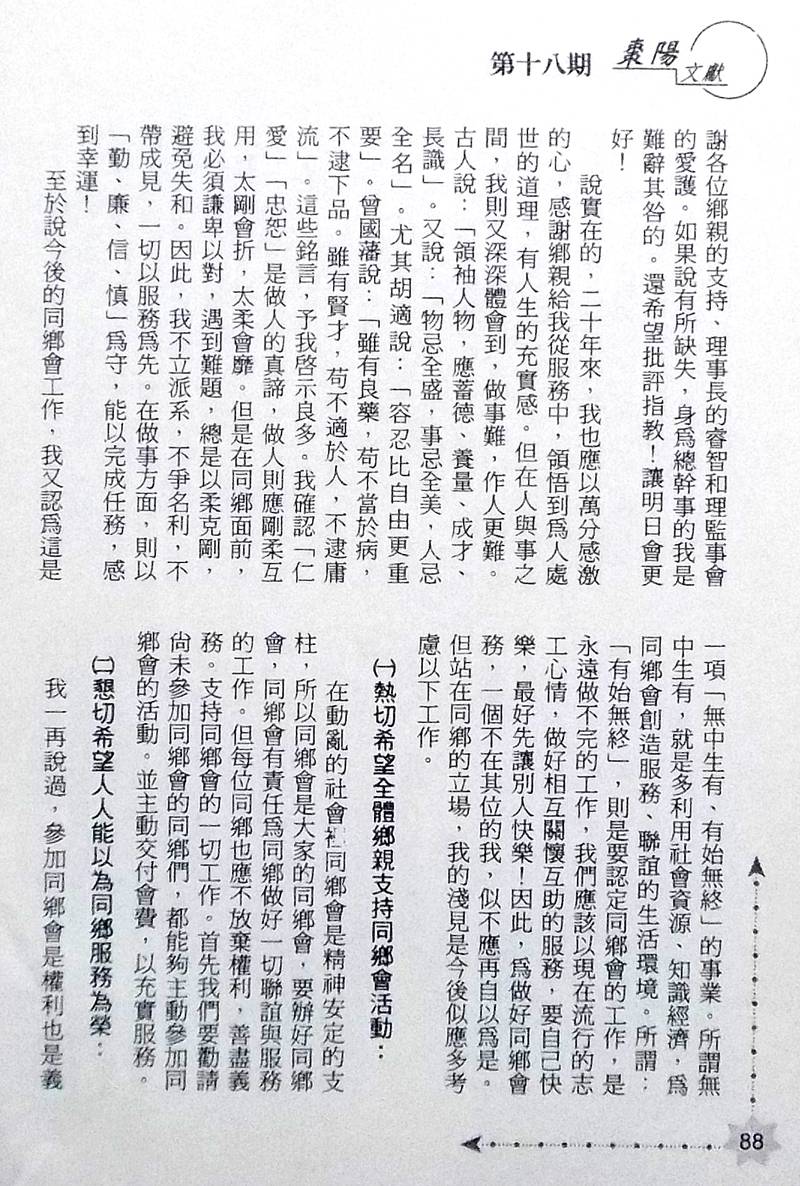 第十八期
棗陽
文獻
謝各位鄉親的支持、理事長的睿智和理監事會
的愛護。如果說有所缺失，身爲總幹事的我是
難辭其咎的。還希望批評指教！讓明日會更
好！
說實在的，二十年來，我也應以萬分感激
的心，感謝鄉親給我從服務中，領悟到爲人處
世的道理，有人生的充實感。但在人與事之
間，我則又深深體會到，做事難，作人更難。
古人說：「領袖人物，應蓄德、養量、成才、
長識」。又說：「物忌全盛，事忌全美，人忌
全名」。尤其胡適說：「容忍比自由更重
要」。曾國藩說：「雖有良藥，苟不當於病，
不逮下品。雖有賢才，苟不適於人，不逮庸
流」。這些銘言，予我啓示良多。我確認「仁
愛」「忠恕」是做人的真諦，做人則應剛柔互
用，太剛會折，太柔會靡。但是在同鄉面前，
我必須謙卑以對，遇到難題，總是以柔克剛，
避免失和。因此，我不立派系，不爭名利，不
帶成見，一切以服務爲先。在做事方面，則以
「勤、廉、信、慎」爲守，能以完成任務，感
到幸運！
至於說今後的同鄉會工作，我又認爲這是
一項「無中生有、有始無終」的事業。所謂無
中生有，就是多利用社會資源、知識經濟，爲
同鄉會創造服務、聯誼的生活環境。所謂：
「有始無終」，則是要認定同鄉會的工作，是
永遠做不完的工作，我們應該以現在流行的志
工心情，做好相互關懷互助的服務，要自己快
樂，最好先讓別人快樂！因此，爲做好同鄉會
務，一個不在其位的我，似不應再自以爲是。
但站在同鄉的立場，我的淺見是今後似應多考
慮以下工作。
㈠熱切希望全體鄉親支持同鄉會活動：
在動亂的社會裡同鄉會是精神安定的支
柱，所以同鄉會是大家的同鄉會，要辦好同鄉
會，同鄉會有責任爲同鄉做好一切聯誼與服務
的工作。但每位同鄉也應不放棄權利，善盡義
務。支持同鄉會的一切工作。首先我們要勸請
尚未參加同鄉會的同鄉們，都能夠主動參加同
鄉會的活動。並主動交付會費，以充實服務。
㈡懇切希望人人能以為同鄉服務為榮：
我一再說過，參加同鄉會是權利也是義
88